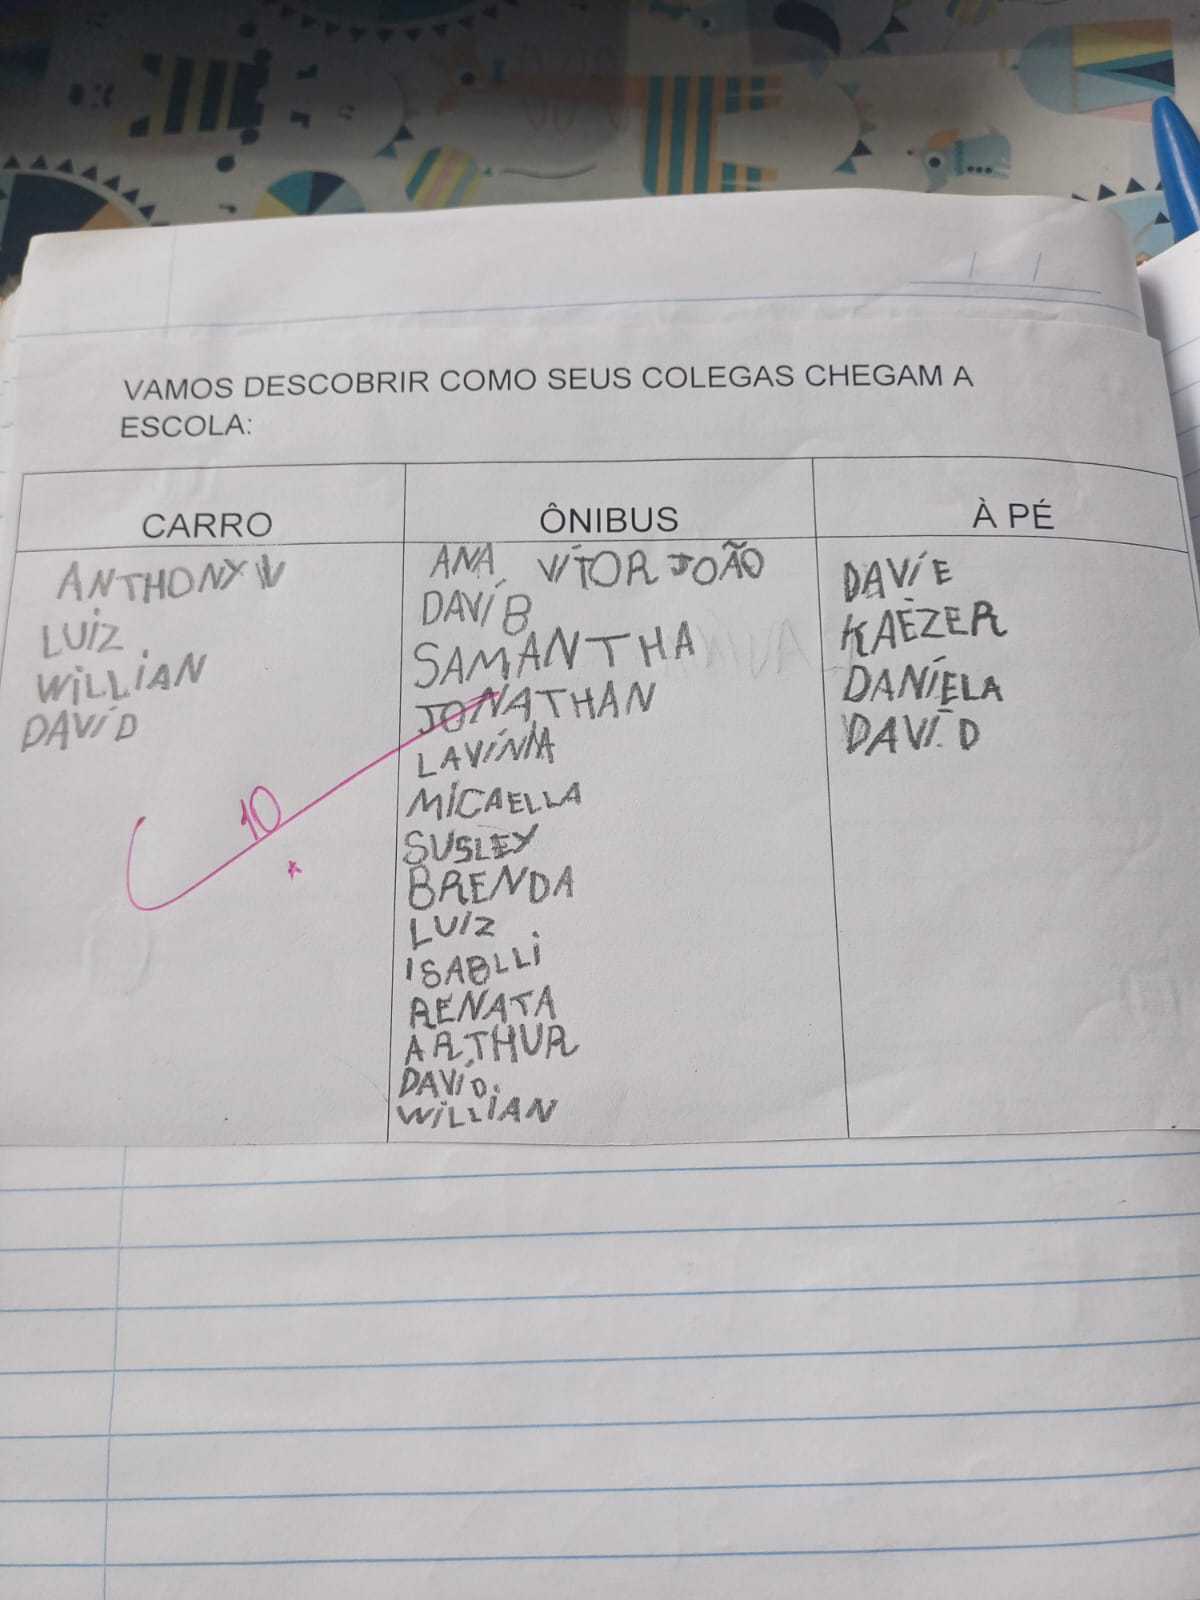 VAMOS DESCOBRIR COMO SEUS COLEGAS CHEGAM A
ESCOLA:
CARRO
ANTHONY W
LUIZ
WILLIAN
DAVÍD
10
ÔNIBUS
ANA VÍTOR JOÃO
DAVÍ B
SAMANTHA
JONATHAN
LAVÍNIA
MICAELLA
SUSLEY
BRENDA
LUIZ
ISABLLI
RENATA
ARTHUR
DAVÍD
WILLIAN
À PÉ
DAVÍ E
KAÉZER
DANÍELA
DAVÍ D